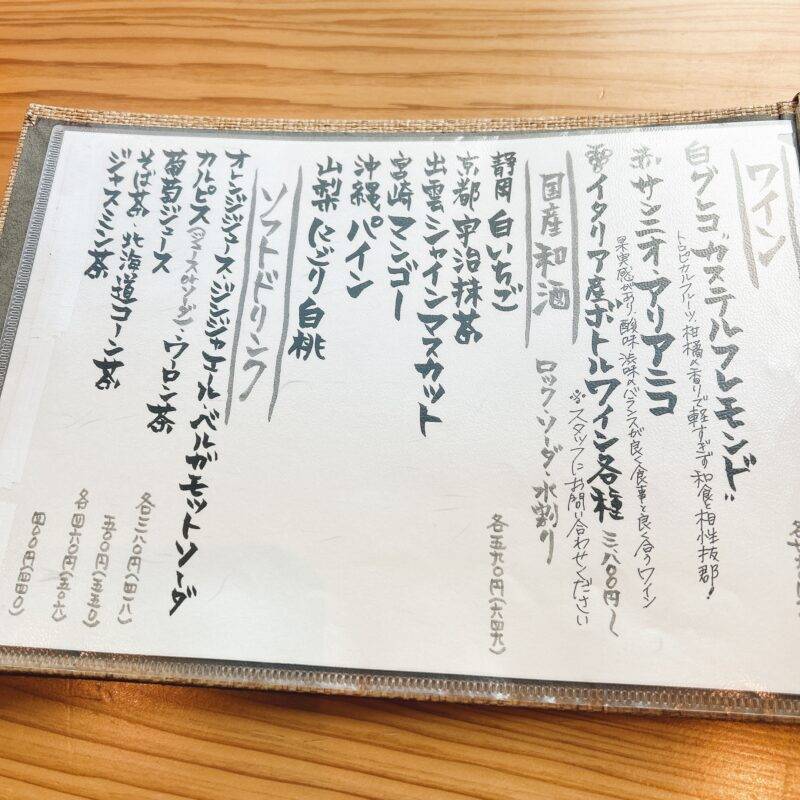 ワイン
白 グレコ"カステルフレモンド"
トロピカルフルーツ、柑橘の香りで軽すぎず和食と相性抜群!
赤 サンニオ・アリアニコ
果実感があり、酸味渋味のバランスが良く食事と良く合うワイン
イタリア産ボトルワイン各種 三八〇〇円〜
※スタッフにお問い合わせください
国産和酒 ロック・ソーダ・水割り
静岡 白いちご 各五九〇円(六四九)
京都 宇治抹茶
出雲 シャインマスカット
宮崎 マンゴー
沖縄 パイン
山梨 にごり白桃
ソフトドリンク
オレンジジュース・ジンジャエール・ベルガモットソーダ
カルピス(ジュースorソーダ)・ウーロン茶 各三八〇円(四一八)
葡萄ジュース 五〇〇円(五五〇)
そば茶・北海道コーン茶 各四六〇円(五〇六)
ジャスミン茶 四〇〇円(四四〇)